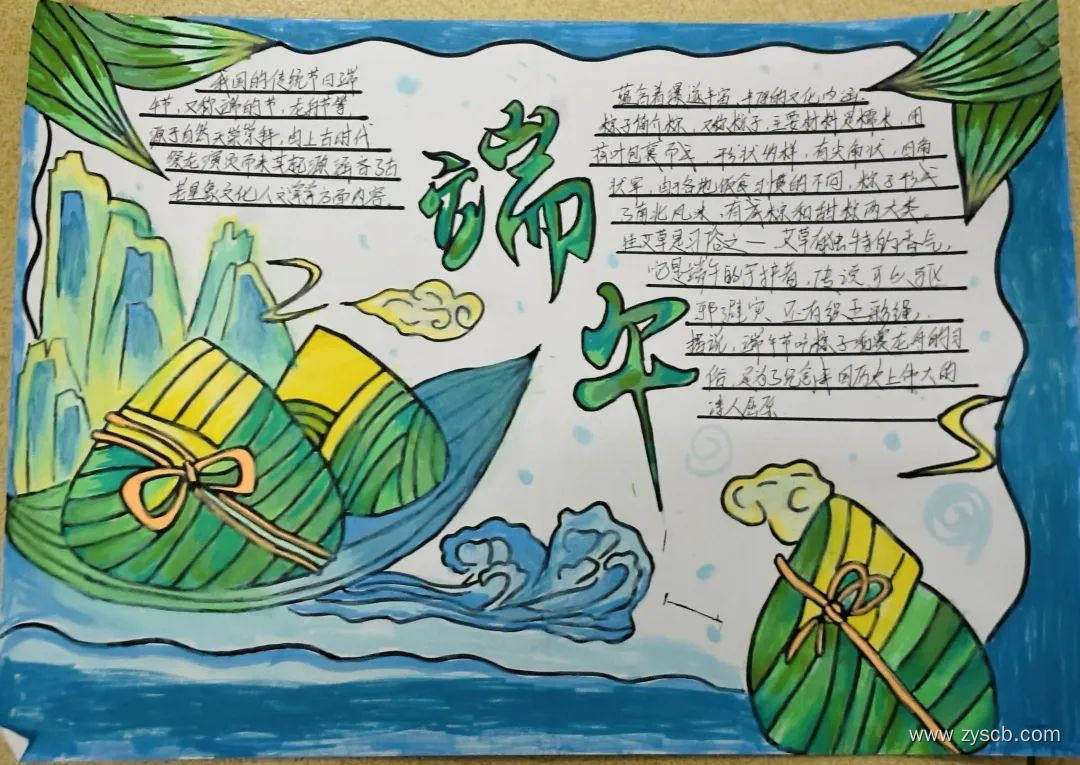 我国的传统节日端
午节，又称端的节，龙舟节等，
源于自然天崇祭拜，由上古时代
祭龙演变而来其起源涵 了古
老星象文化人文 等方面内容。
端午
蕴含着深邃丰富、 的文化内涵
粽子简介粽，又称粽子，主要材料是糯米，用
荷叶包裹而成，形状 样，有尖角状，四角
状穿，由于各地饮食习惯的不同，粽子形成
了南北风味，有咸粽和甜粽两大类。
挂艾草是习俗之一 艾草有独特的香气，
它是端午的守护者，传说可以驱
邪避灾 还有织五彩绳，
据说，端午节吃粽子和赛龙舟的习
俗，是为了纪念 国历史上伟大的
诗人屈原
www.zyscb.com